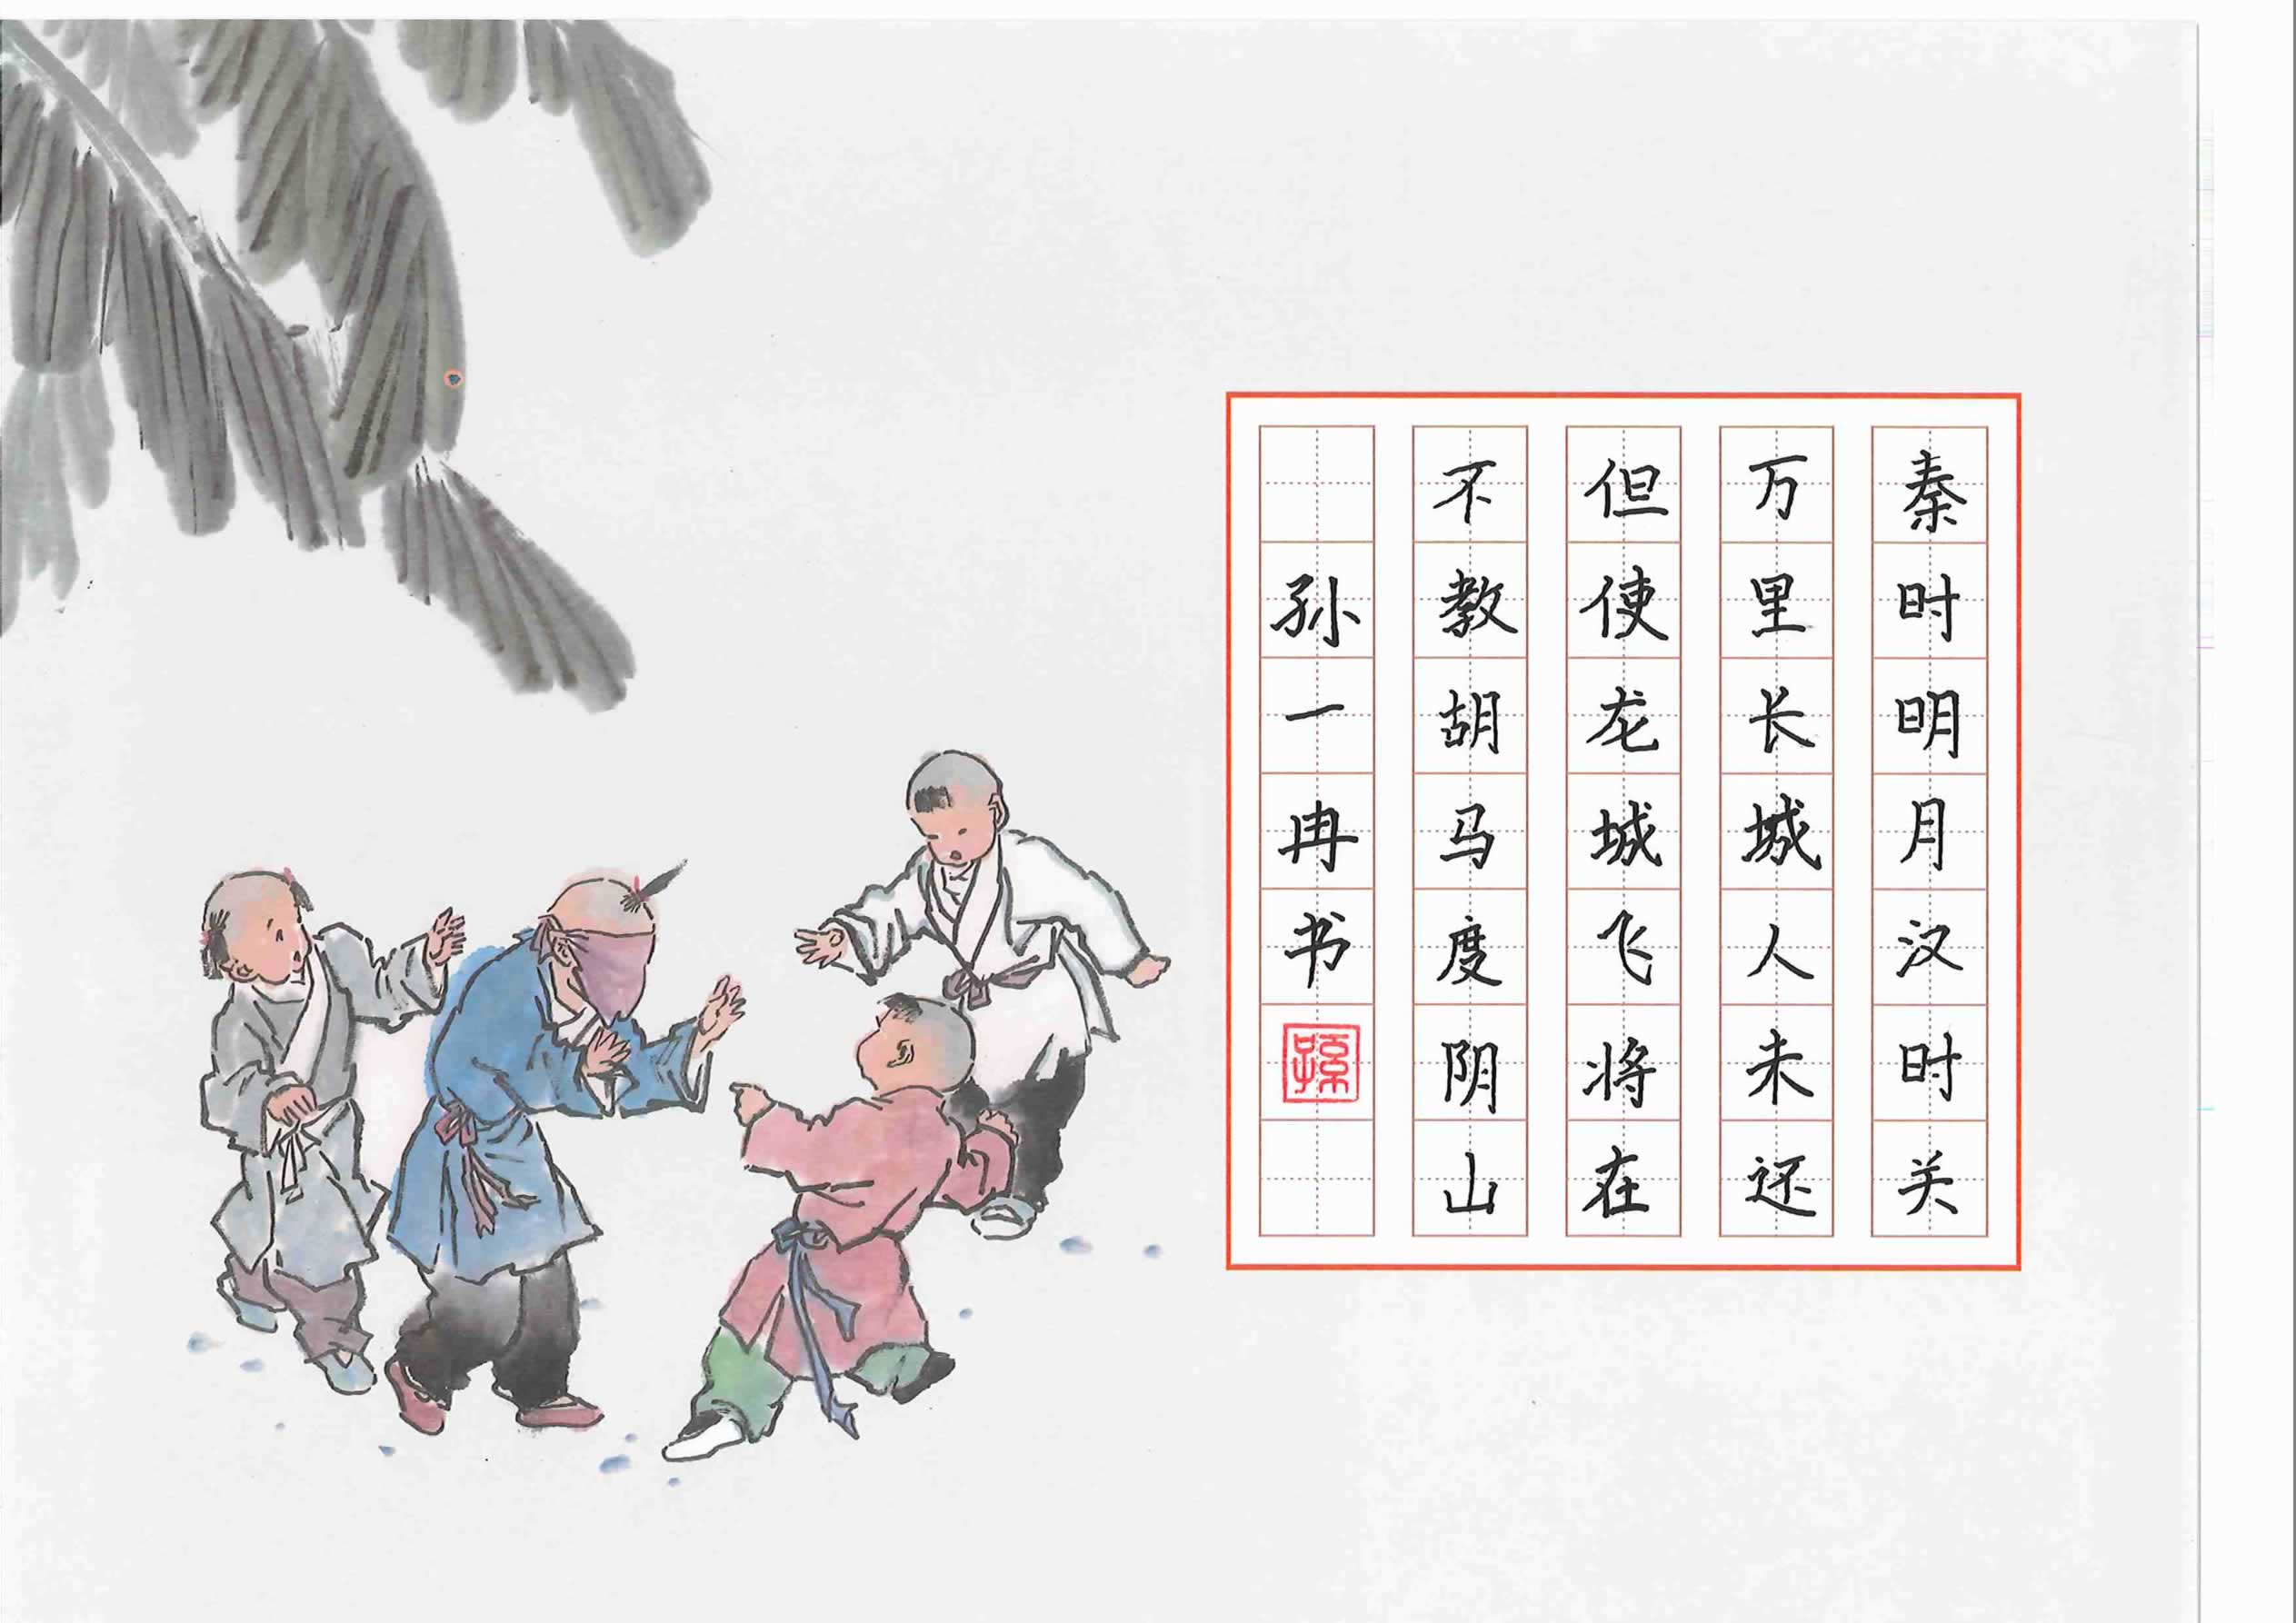 秦时明月汉时关
万里长城人未还
但使龙城飞将在
不教胡马度阴山
孙一冉书
孫